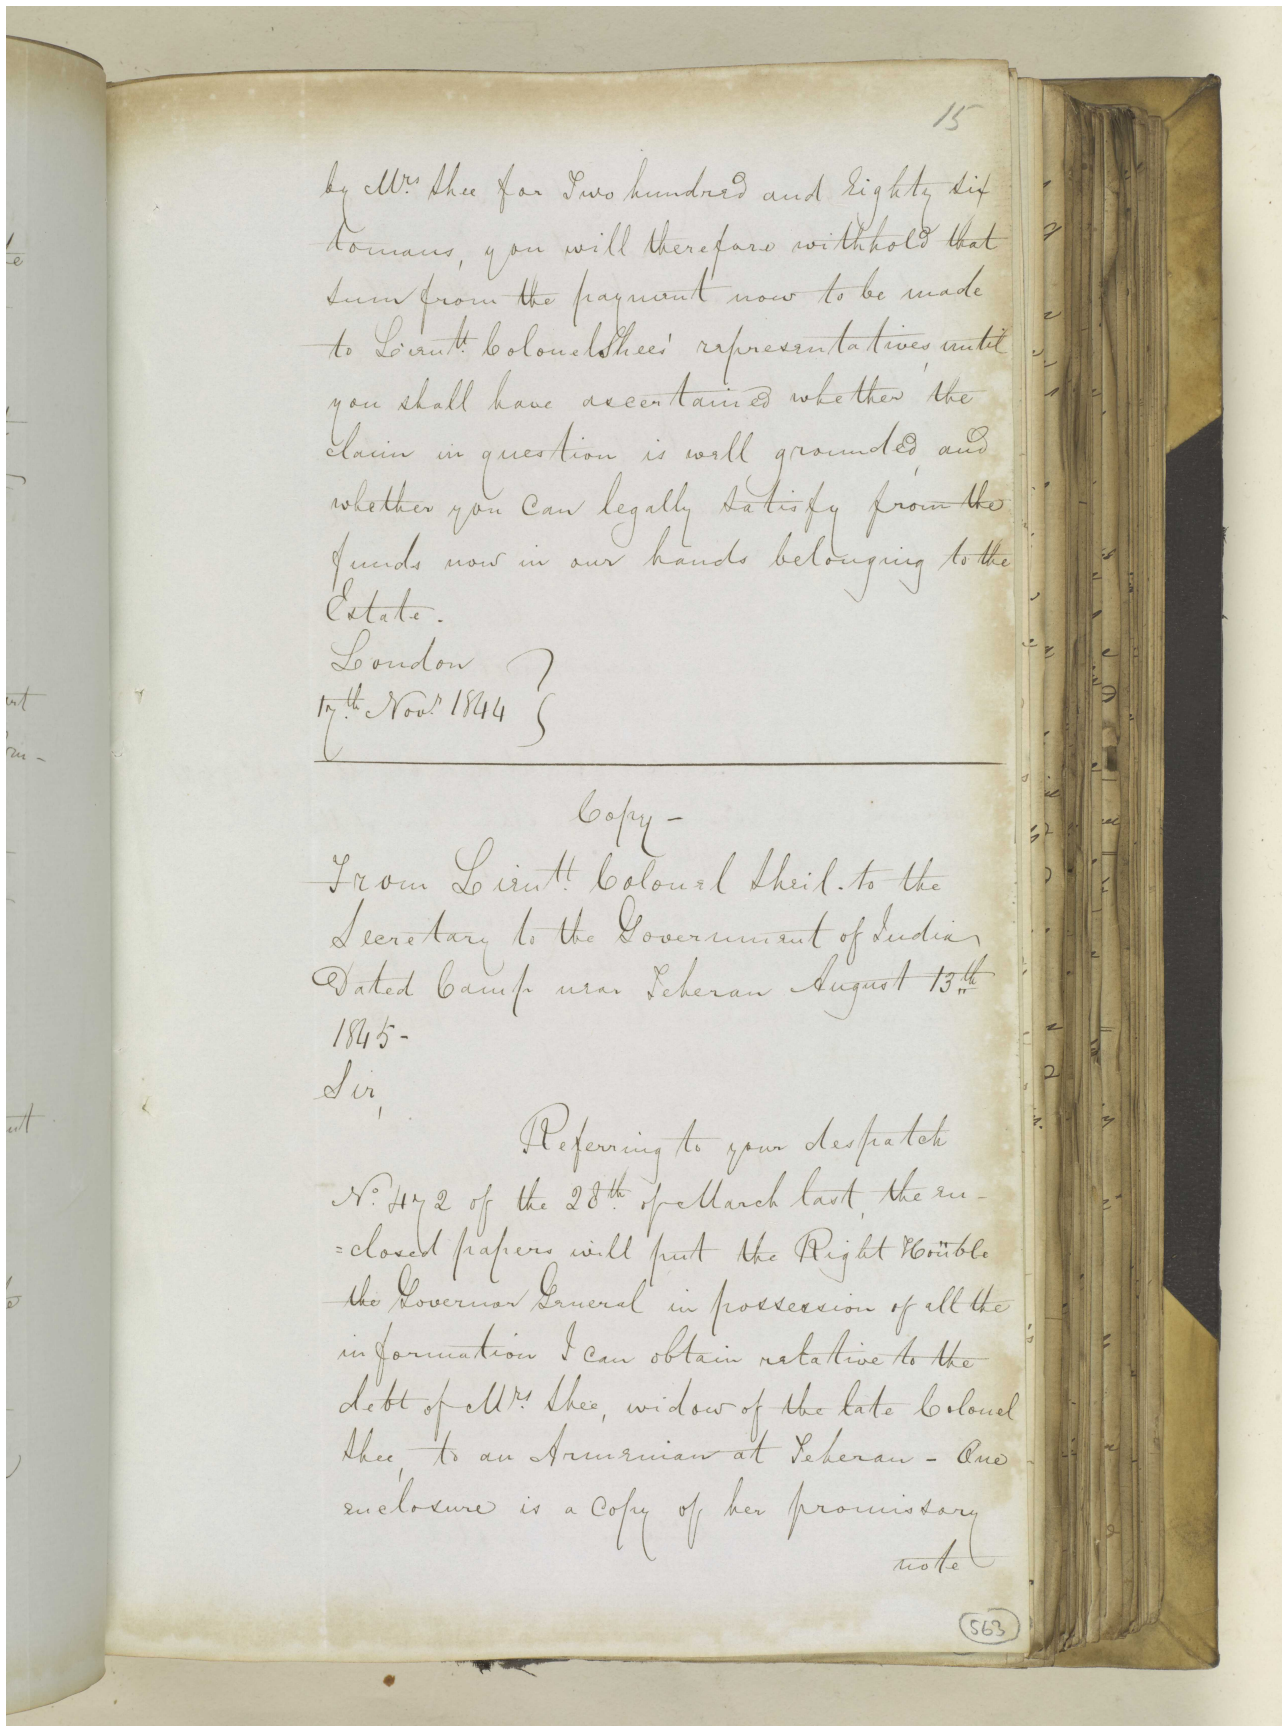 15
by Mrs. Shee for Two hundred and Eighty six
tomans, you will therefore withhold that
sum from the payment now to be made
to Lieutt. Colonel Shees' representatives, until
you shall have ascertained whether the
claim in question is well grounded, and
whether you can legally satisfy from the
funds now in our hands belonging to the
Estate.
London
17th. Novr. 1844
Copy -
From Lieutt. Colonel Sheil. to the
Secretary to the Government of India
Dated Camp near Teheran August 13th
1845 -
Sir,
Referring to your despatch
No. 472 of the 28th. of March last, the en-
=closed papers will put the Right Honble
the Governor General in possession of all the
information I can obtain relative to the
debt of Mrs. Shee, widow of the late Colonel
Shee, to an Armenian at Teheran - One
enclosure is a copy of her promissory
note
563